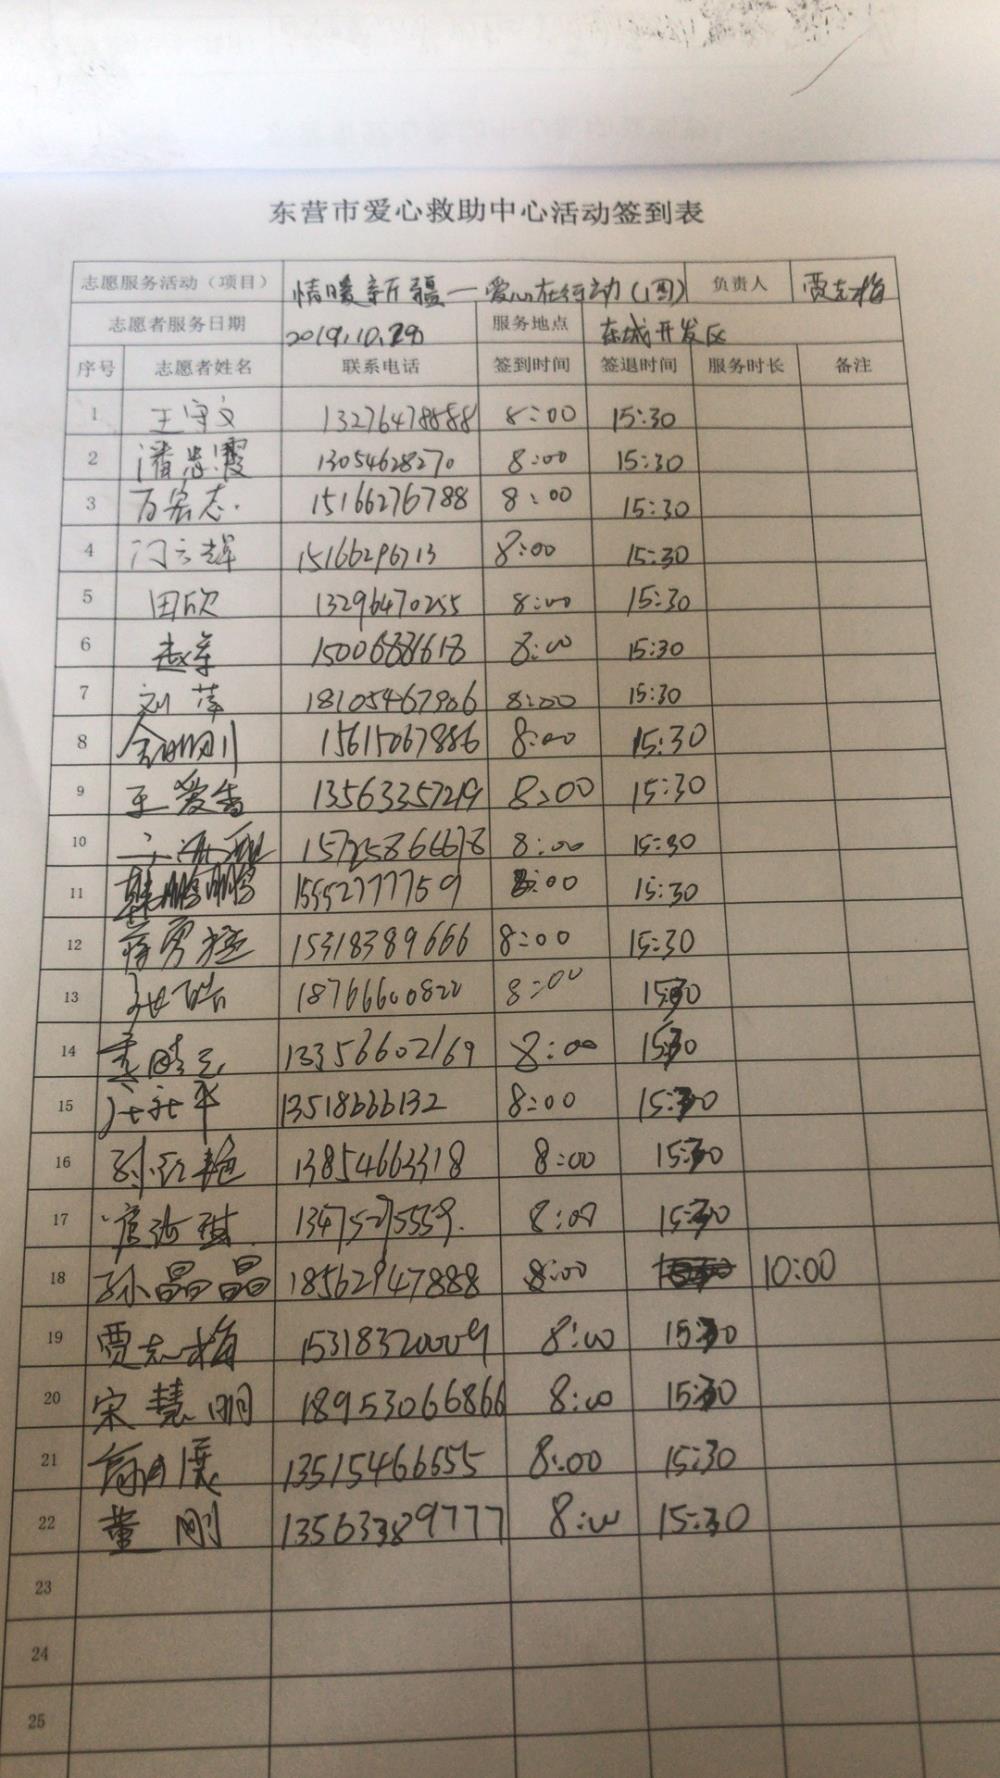 东营市爱心救助中心活动签到表
志愿服务活动（项目） 情暖新疆一爱心在行动（1团） 负责人 贾志梅
志愿者服务日期 2019.10.29 服务地点 东城开发区
序号 志愿者姓名 联系电话 签到时间 签退时间 服务时长 备注
1 王守文 13276478888 8:00 15:30
2 潘忠霞 13054628270 8:00 15:30
3 万宏志 15166276788 8:00 15:30
4 门云辉 15166296713 8:00 15:30
5 田欣 13296470255 8:00 15:30
6 赵军 15006881618 8:00 15:30
7 刘萍 18105467906 8:00 15:30
8 15615067886 8:00 15:30
9 王爱香 13563357219 8:00 15:30
10 15725866678 8:00 15:30
11 韩鹏鹏 15552777759 8:00 15:30
12 蒋勇 15318389666 8:00 15:30
13 18766600822 8:00 15:30
14 李晓 13356602169 8:00 15:30
15 13518666132 8:00 15:30
16 孙红艳 13854663318 8:00 15:30
17 8:00 15:30
18 孙晶晶 18562947888 8:00 10:00
19 贾志梅 15318320009 8:00 15:30
20 宋慧明 18953066866 8:00 15:30
21 13515466655 8:00 15:30
22 董刚 13563389777 8:00 15:30
23
24
25